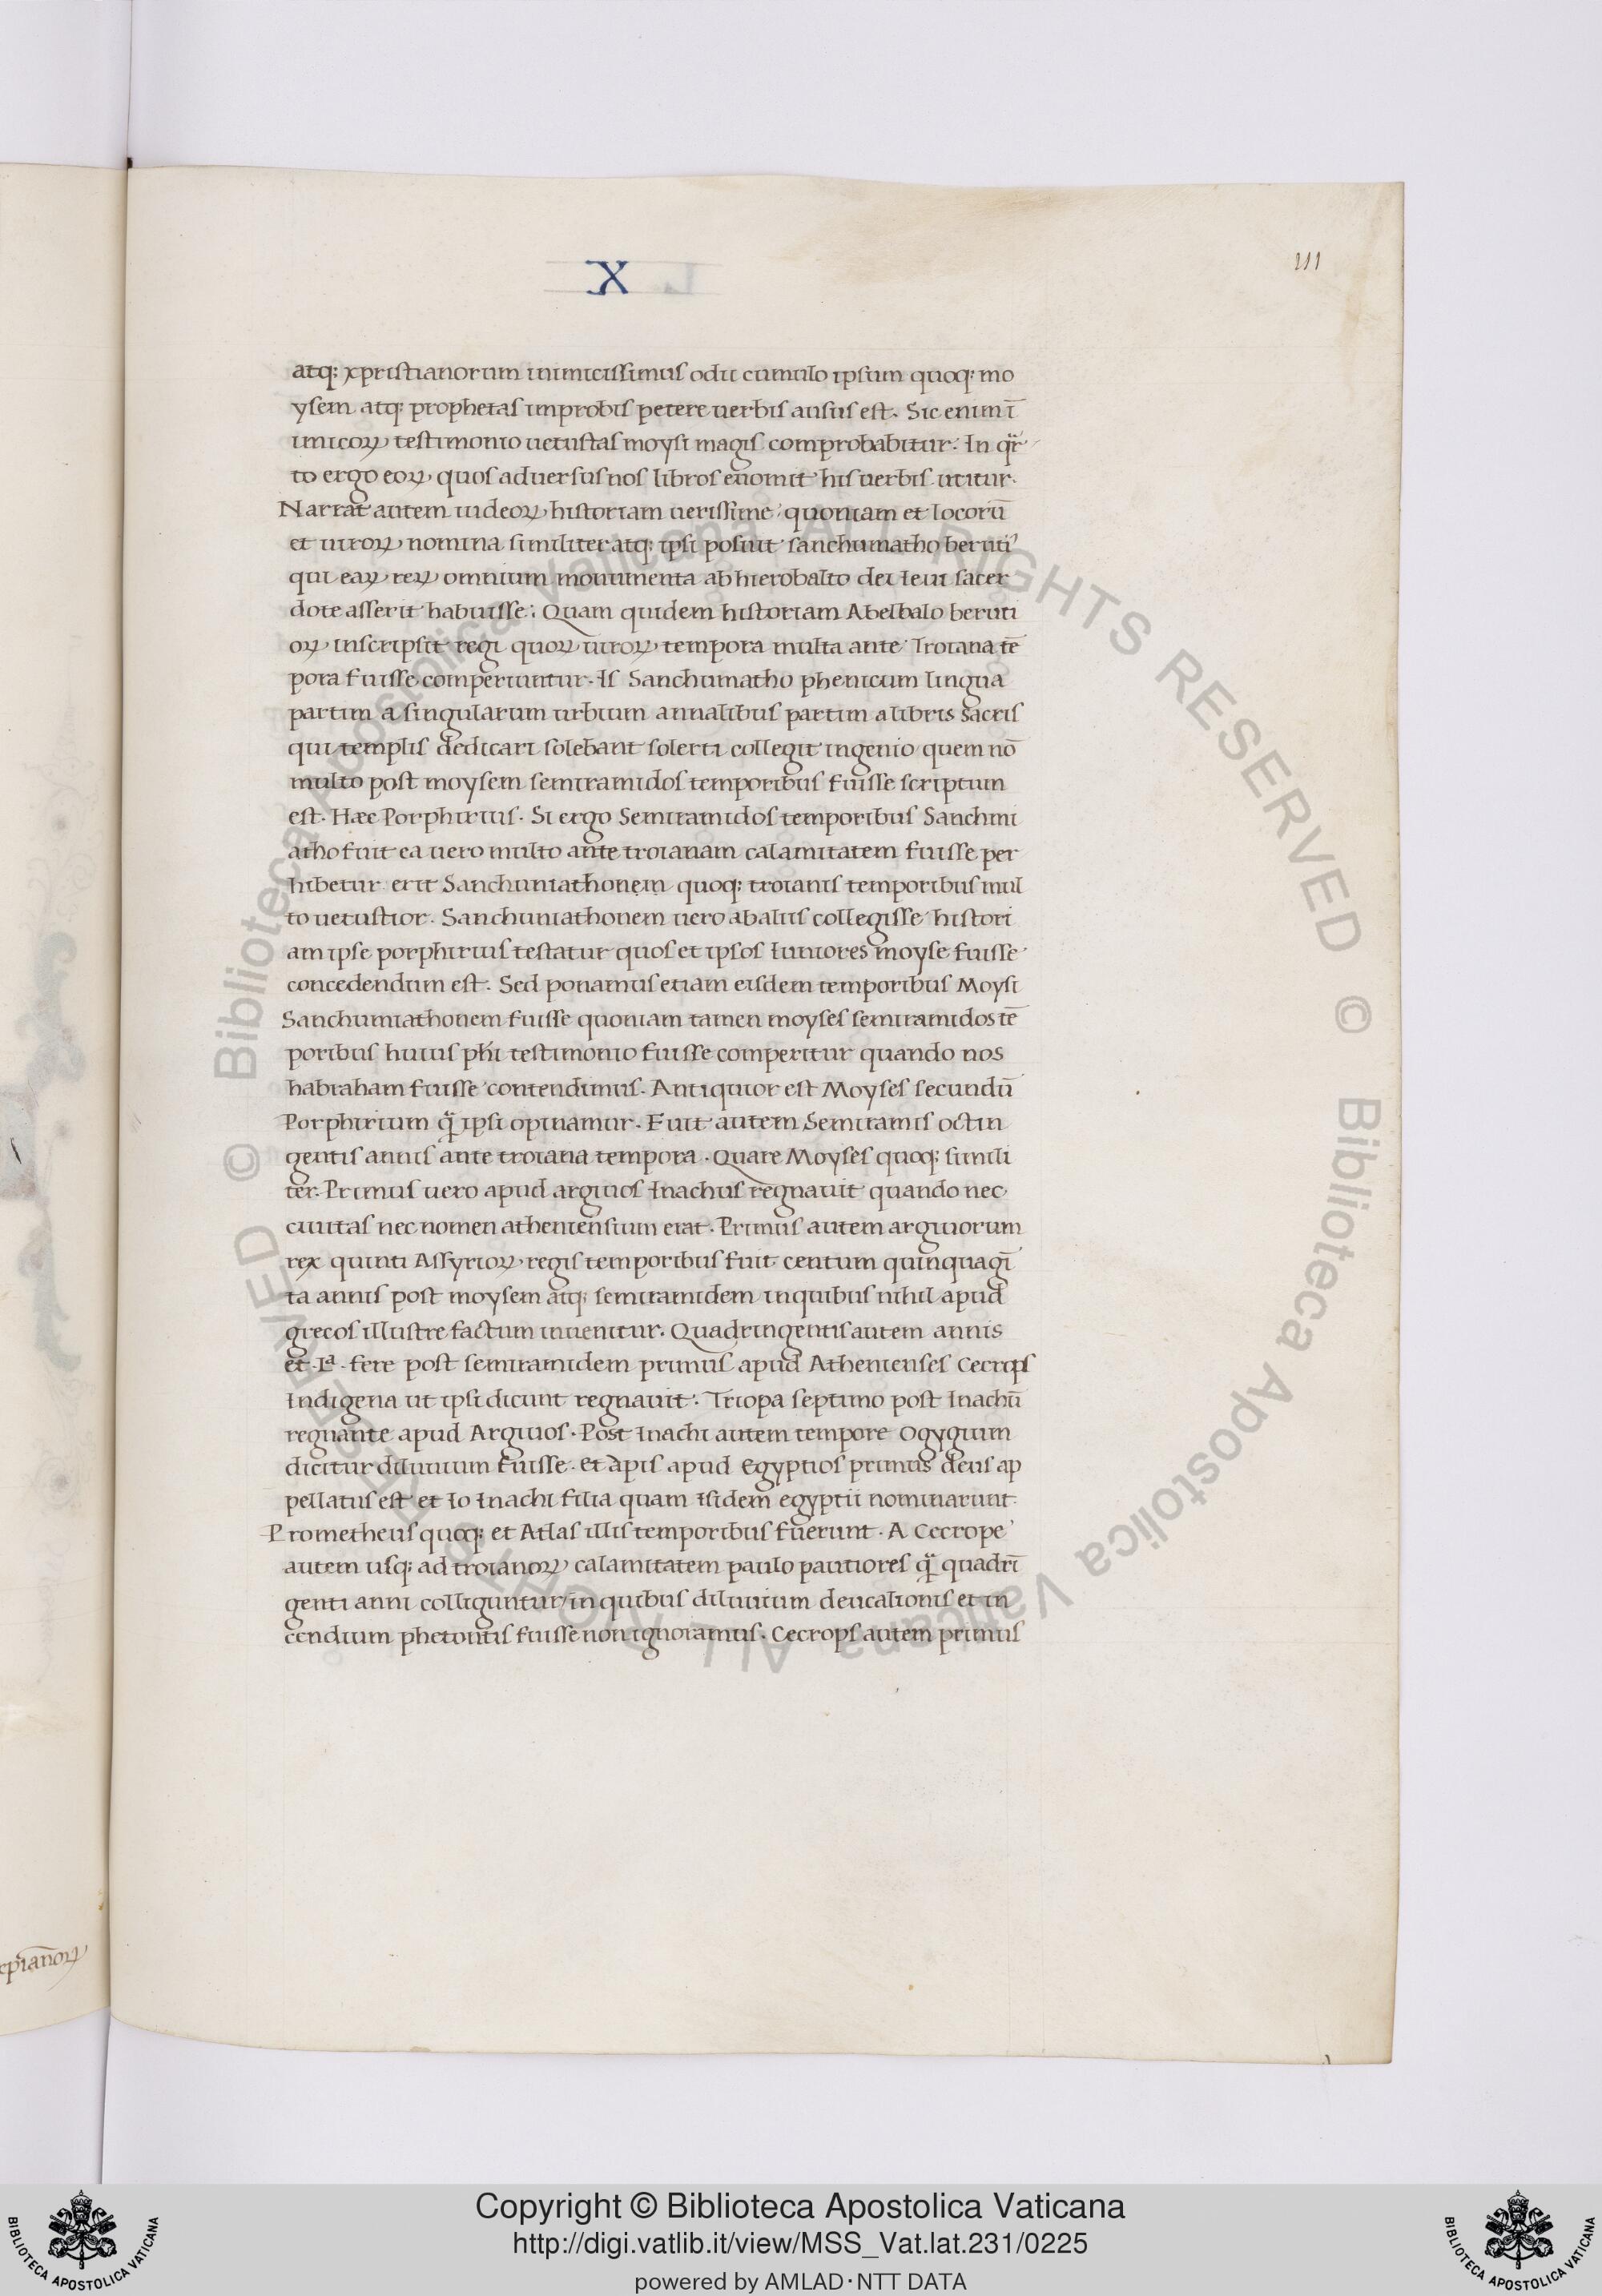 X
111
atq; xpristianorum inimicissimus odii cumulo ipsum quoq; mo
ysem atq; prophetas improbis petere uerbis ausus est. Sic enim ī
imicoꝝ testimonio uetustas moysi magis comprobabitur. In qr̈
to ergo eoꝝ quos aduersus nos libros euomit his uerbis utitur.
Narrat autem iudeoꝝ historiam uerissime quoniam et locorū
et uiroꝝ nomina similiter atq; ipsi posuit sanchumatho beruti
qui eaꝝ reꝝ omnium monumenta ab hierobalto dei leui sacer
dote asserit habuisse. Quam quidem historiam Abelbalo beruti
oꝝ inscripsit regi quoꝝ uiroꝝ tempora multa ante Troiana tē
pora fuisse comperiuntur. Is Sanchumatho phenicum lingua
partim a singularum urbium annalibus partim a libris sacris
qui templis dedicari solebant solerti collegit ingenio quem nō
multo post moysem semiramidos temporibus fuisse scriptum
est. Hæc Porphirius. Si ergo Semiramidos temporibus Sanchuni
atho fuit ea uero multo ante troianam calamitatem fuisse per
hibetur erit Sanchuniathonem quoq; troianis temporibus mul
to uetustior. Sanchuniathonem uero ab aliis collegisse histori
am ipse porphirius testatur quos et ipsos iuniores moyse fuisse
concedendum est. Sed ponamus etiam eisdem temporibus Moysi
Sanchuniathonem fuisse quoniam tamen moyses semiramidos tē
poribus huius phi testimonio fuisse comperitur quando nos
habraham fuisse contendimus. Antiquior est Moyses secundū
Porphirium q̈ ipsi opinamur. Fuit autem Semiramis octin
gentis annis ante troiana tempora. Quare Moyses quoq; simili
ter. Primus uero apud argiuos Inachus regnauit quando nec
ciuitas nec nomen atheniensium erat. Primus autem argiuorum
rex quinti Assyrioꝝ regis temporibus fuit centum quinquagī
ta annis post moysem atq; semiramidem in quibus nihil apud
grecos illustre factum inuenitur. Quadringentis autem annis
et .Lᵃ. fere post semiramidem primus apud Athenienses Cecrops
Indigena ut ipsi dicunt regnauit. Triopa septimo post Inachū
regnante apud Argiuos. Post Inachi autem tempore Ogygium
dicitur diluuium fuisse. et apis apud Egyptios primus deus ap
pellatus est et Io Inachi filia quam Isidem egyptii nominarunt.
Prometheus quoq; et Atlas illis temporibus fuerunt. A Cecrope
autem usq; ad troianoꝝ calamitatem paulo pautiores q̈ quadrī
genti anni colliguntur in quibus diluuium deucalionis et in
cendium phetontis fuisse non ignoramus. Cecrops autem primus
© Biblioteca Apostolica Vaticana ALL RIGHTS RESERVED
© Biblioteca Apostolica Vaticana ALL RIGHTS RESERVED
Copyright © Biblioteca Apostolica Vaticana
http://digi.vatlib.it/view/MSS_Vat.lat.231/0225
powered by AMLAD·NTT DATA
BIBLIOTECA APOSTOLICA VATICANA
BIBLIOTECA APOSTOLICA VATICANA